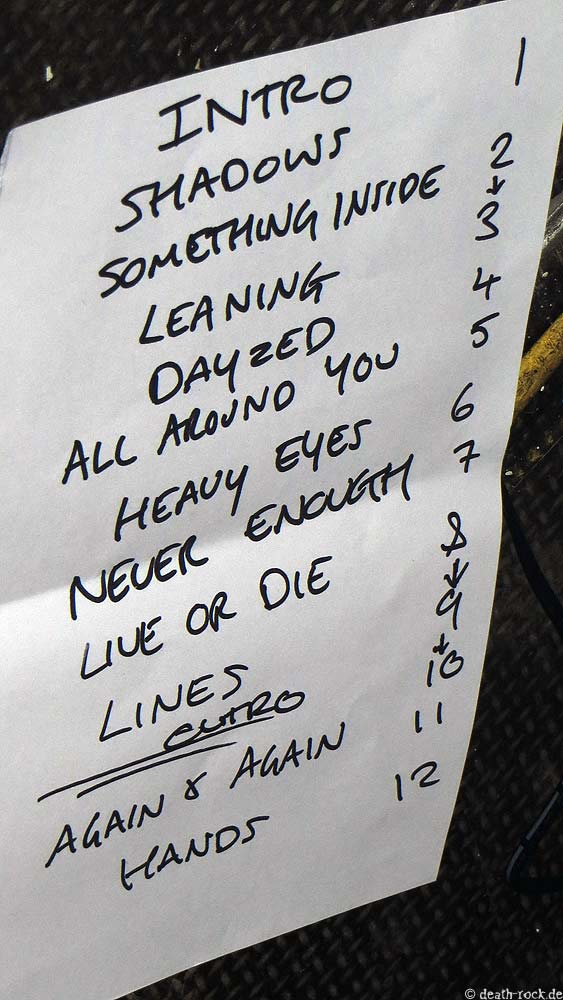 INTRO 1
SHADOWS 2
SOMETHING INSIDE 3
LEANING 4
DAYZED 5
ALL AROUND YOU 6
HEAVY EYES 7
NEVER ENOUGH 8
LIVE OR DIE 9
LINES 10
OUTRO
AGAIN & AGAIN 11
HANDS 12
© death-rock.de